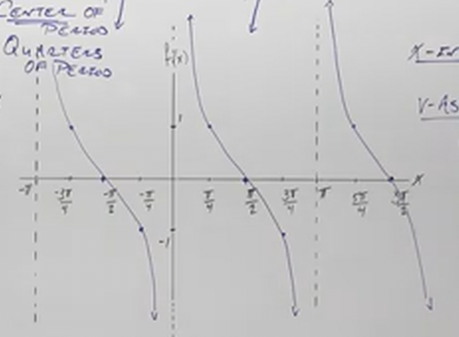 CENTER OF
PERIOD
QUARTERS
OF PERIOD
f(x)
X-IN
V-AS
1
-π
-3π/4
-π/2
-π/4
π/4
π/2
3π/4
π
5π/4
3π/2
X
-1